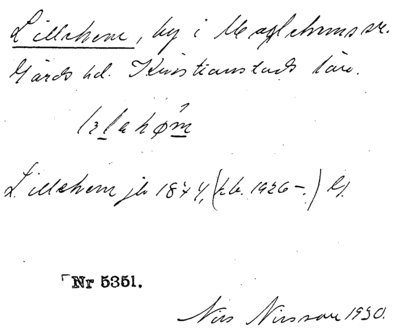 Lillehem, by i Maglehems sn.
Gärds hd. Kristianstads län.
Lillehem jb 1874, (kb. 1926-) G.
Nr 5351.
Nils Nilsson 1930.